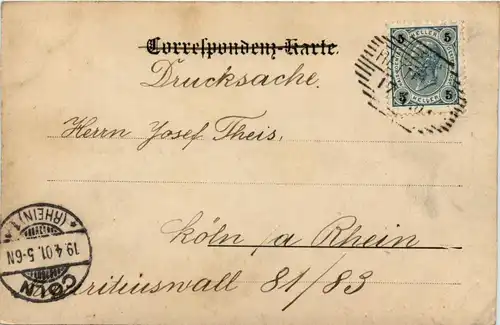 Correspondenz-Karte.
Drucksache.
5 HELLER 5
5 HELLER 5
Herrn Josef Theis.
Köln /a Rhein
CÖLN
19.4.01. 5-6N
* (RHEIN) 1.*
81/83